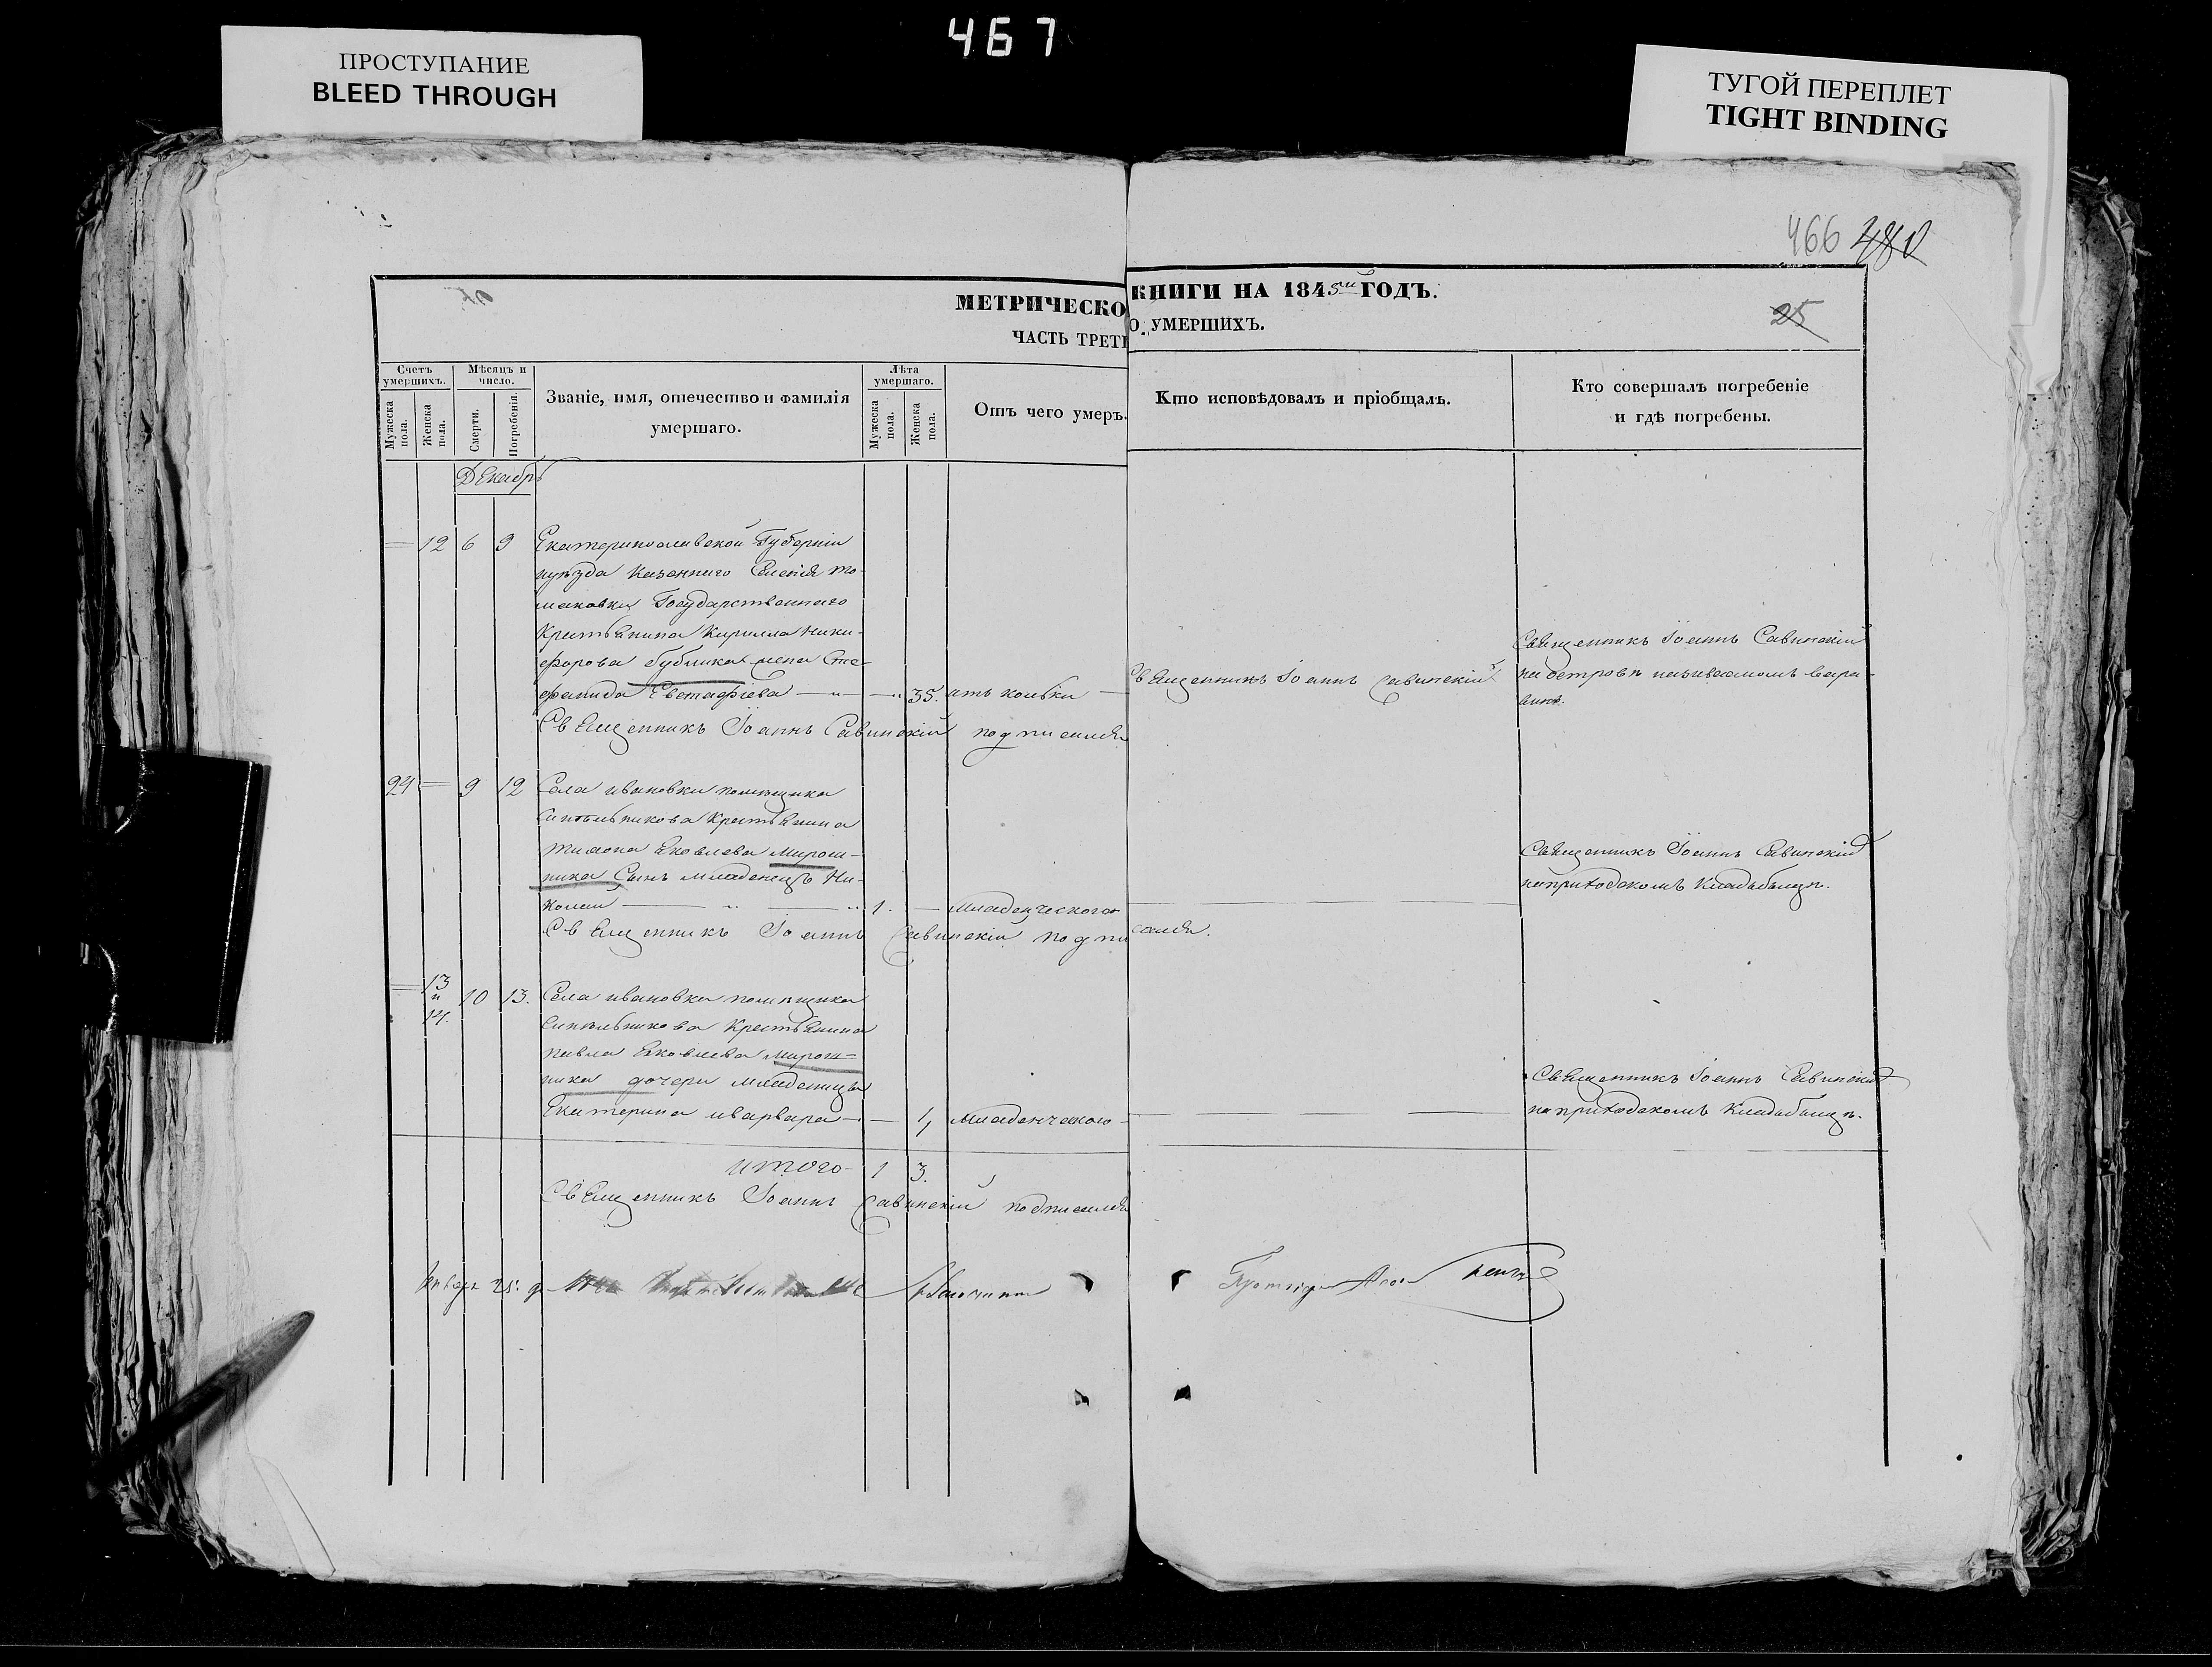 467
ПРОСТУПАНИЕ
BLEED THROUGH
ТУГОЙ ПЕРЕПЛЕТ
TIGHT BINDING
466 480
МЕТРИЧЕСКО КНИГИ НА 1845й ГОДЪ.
25
ЧАСТЬ ТРЕТЬ О УМЕРШИХЪ.
Счетъ умершихъ.
Мужеска пола.
Женска пола.
Мѣсяцъ и число.
Смерти.
Погребенія.
Званіе, имя, отечество и фамилія умершаго.
Лѣта умершаго.
Мужеска пола.
Женска пола.
Отъ чего умеръ.
Кто исповѣдовалъ и пріобщалъ.
Кто совершалъ погребеніе
и гдѣ погребены.
Декабрь
12 6 9 Екатеринославской Губерніи
иуѣзда Казеннаго Селенія То-
маковки Государственнаго
Крестьянина Кирилла Ники-
форова Бублика жена Сте-
фанида Евстафіева 35. отъ
Священникъ Іоаннъ Савинскій
Священникъ Іоаннъ Савинскій
на островѣ называемомъ вара-
Священникъ Іоаннъ Савинскій подписался
24 9 12 Села ивановки помѣщика
Синельникова Крестьянина
Яковлева Мирош-
ника Сынъ младенецъ Ни-
колай 1. Младенческого
Священникъ Іоаннъ Савинскій
наприходскомъ Кладбищѣ.
Священникъ Іоаннъ Савинскій подписался.
13 и 14. 10 13. Села ивановки помѣщика
Синельникова Крестьянина
павла Яковлева Мирош-
ника дочери младенцы
Екатерина иварвара 1/1 Младенческого
Священникъ Іоаннъ Савинскій
на приходскомъ Кладбищѣ.
итого 1 3.
Священникъ Іоаннъ Савинскій подписался
Января 25.